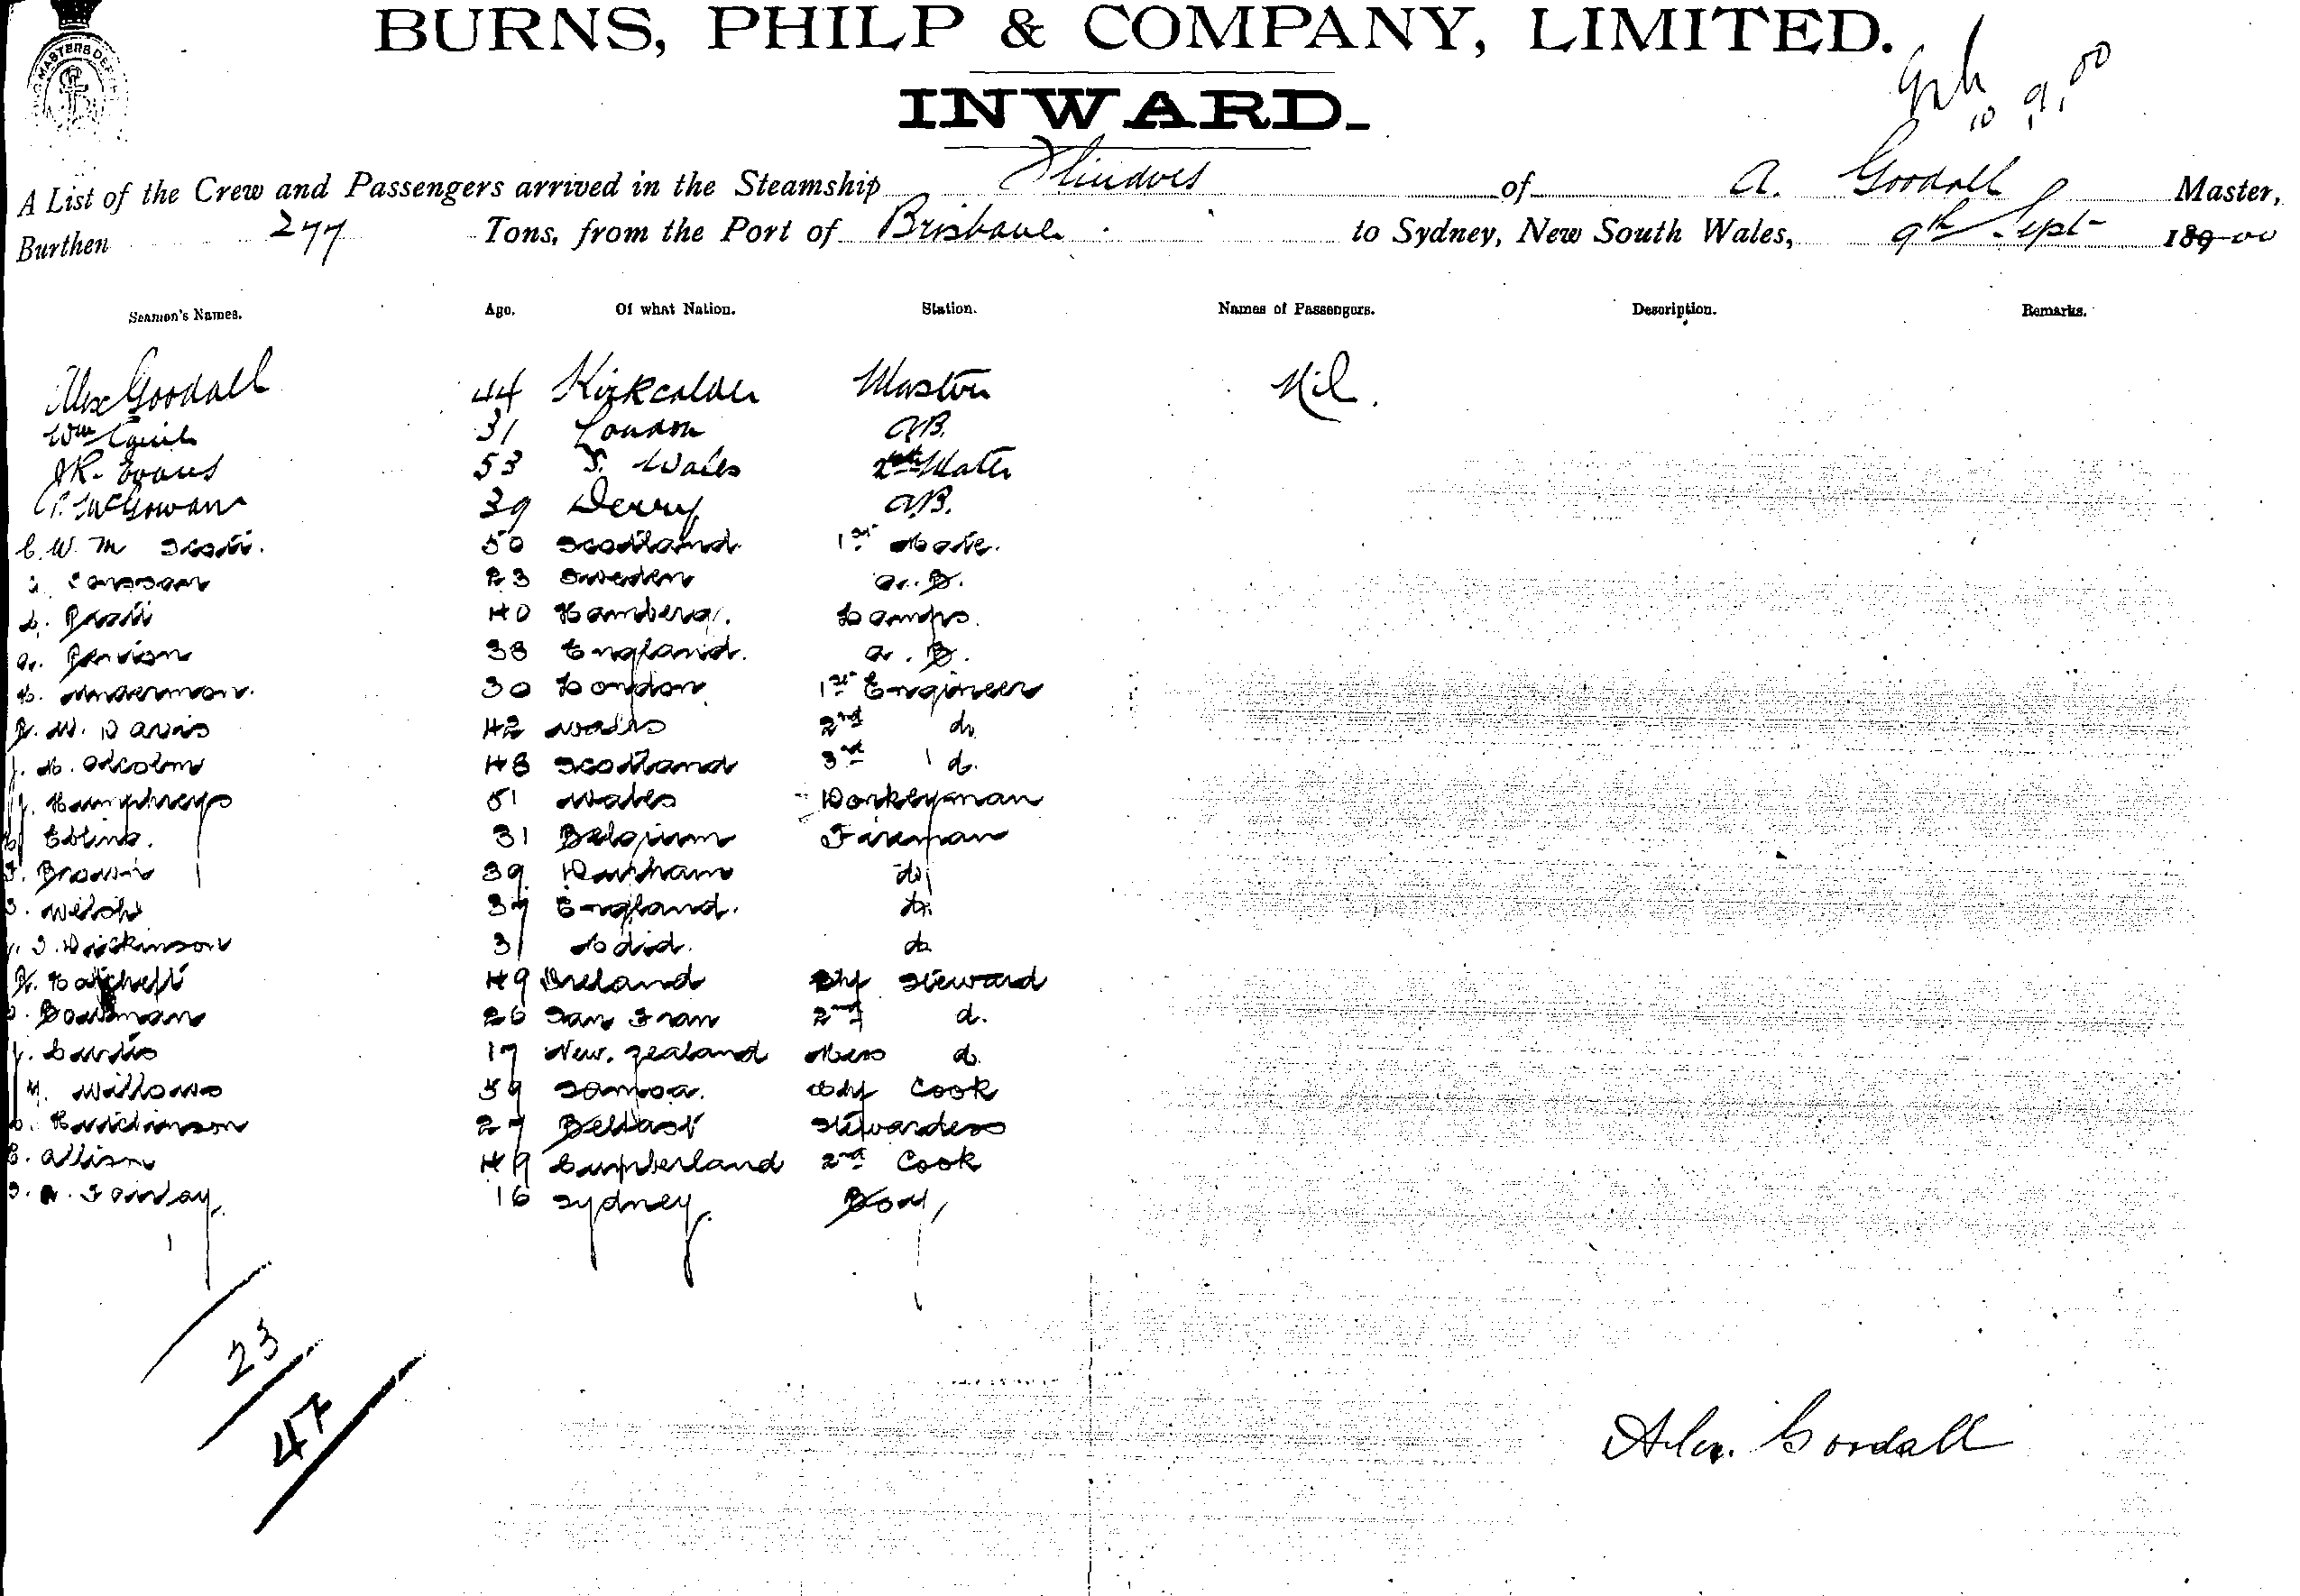 BURNS, PHILP & COMPANY, LIMITED.
INWARD.
10.9.00
A List of the Crew and Passengers arrived in the Steamship Flinders of A. Goodall Master,
Burthen 277 Tons, from the Port of Brisbane to Sydney, New South Wales, 9th Sept 1900
Seamen's Names. Age. Of what Nation. Station. Names of Passengers. Description. Remarks.
Alex Goodall 44 Kirkcalder Master Nil.
Wm 31 London A.B.
J.R. Evans 53 S. Wales 2nd Mate
P. McGowan 39 Derry A.B.
C. W. M Scott. 50 Scotland. 1st Mate.
Larsson 23 Sweden A. B.
L. Pratt 40 Hamberg. Lamps.
A. 38 England. A. B.
H. 30 London 1st Engineer
R. W. Davis 42 Wales 2nd do
J. Malcolm 48 Scotland 3rd do.
J. Humphreys 51 Wales Donkeyman
31 Belgium Fireman
F. Brown 39 Durham do
J. Welsh 37 England. do
J. Dickinson 31 do
R. 49 Ireland Chf Steward
Bowman 26 San Fran 2nd d.
J. Curtis 17 New. Zealand Mess d.
Willows 59 Samoa. Chf Cook
Hutchinson 27 Belfast Stewardess
C. Allison 49 Cumberland 2nd Cook
16 Sydney. Boy
23
47
Alex. Goodall